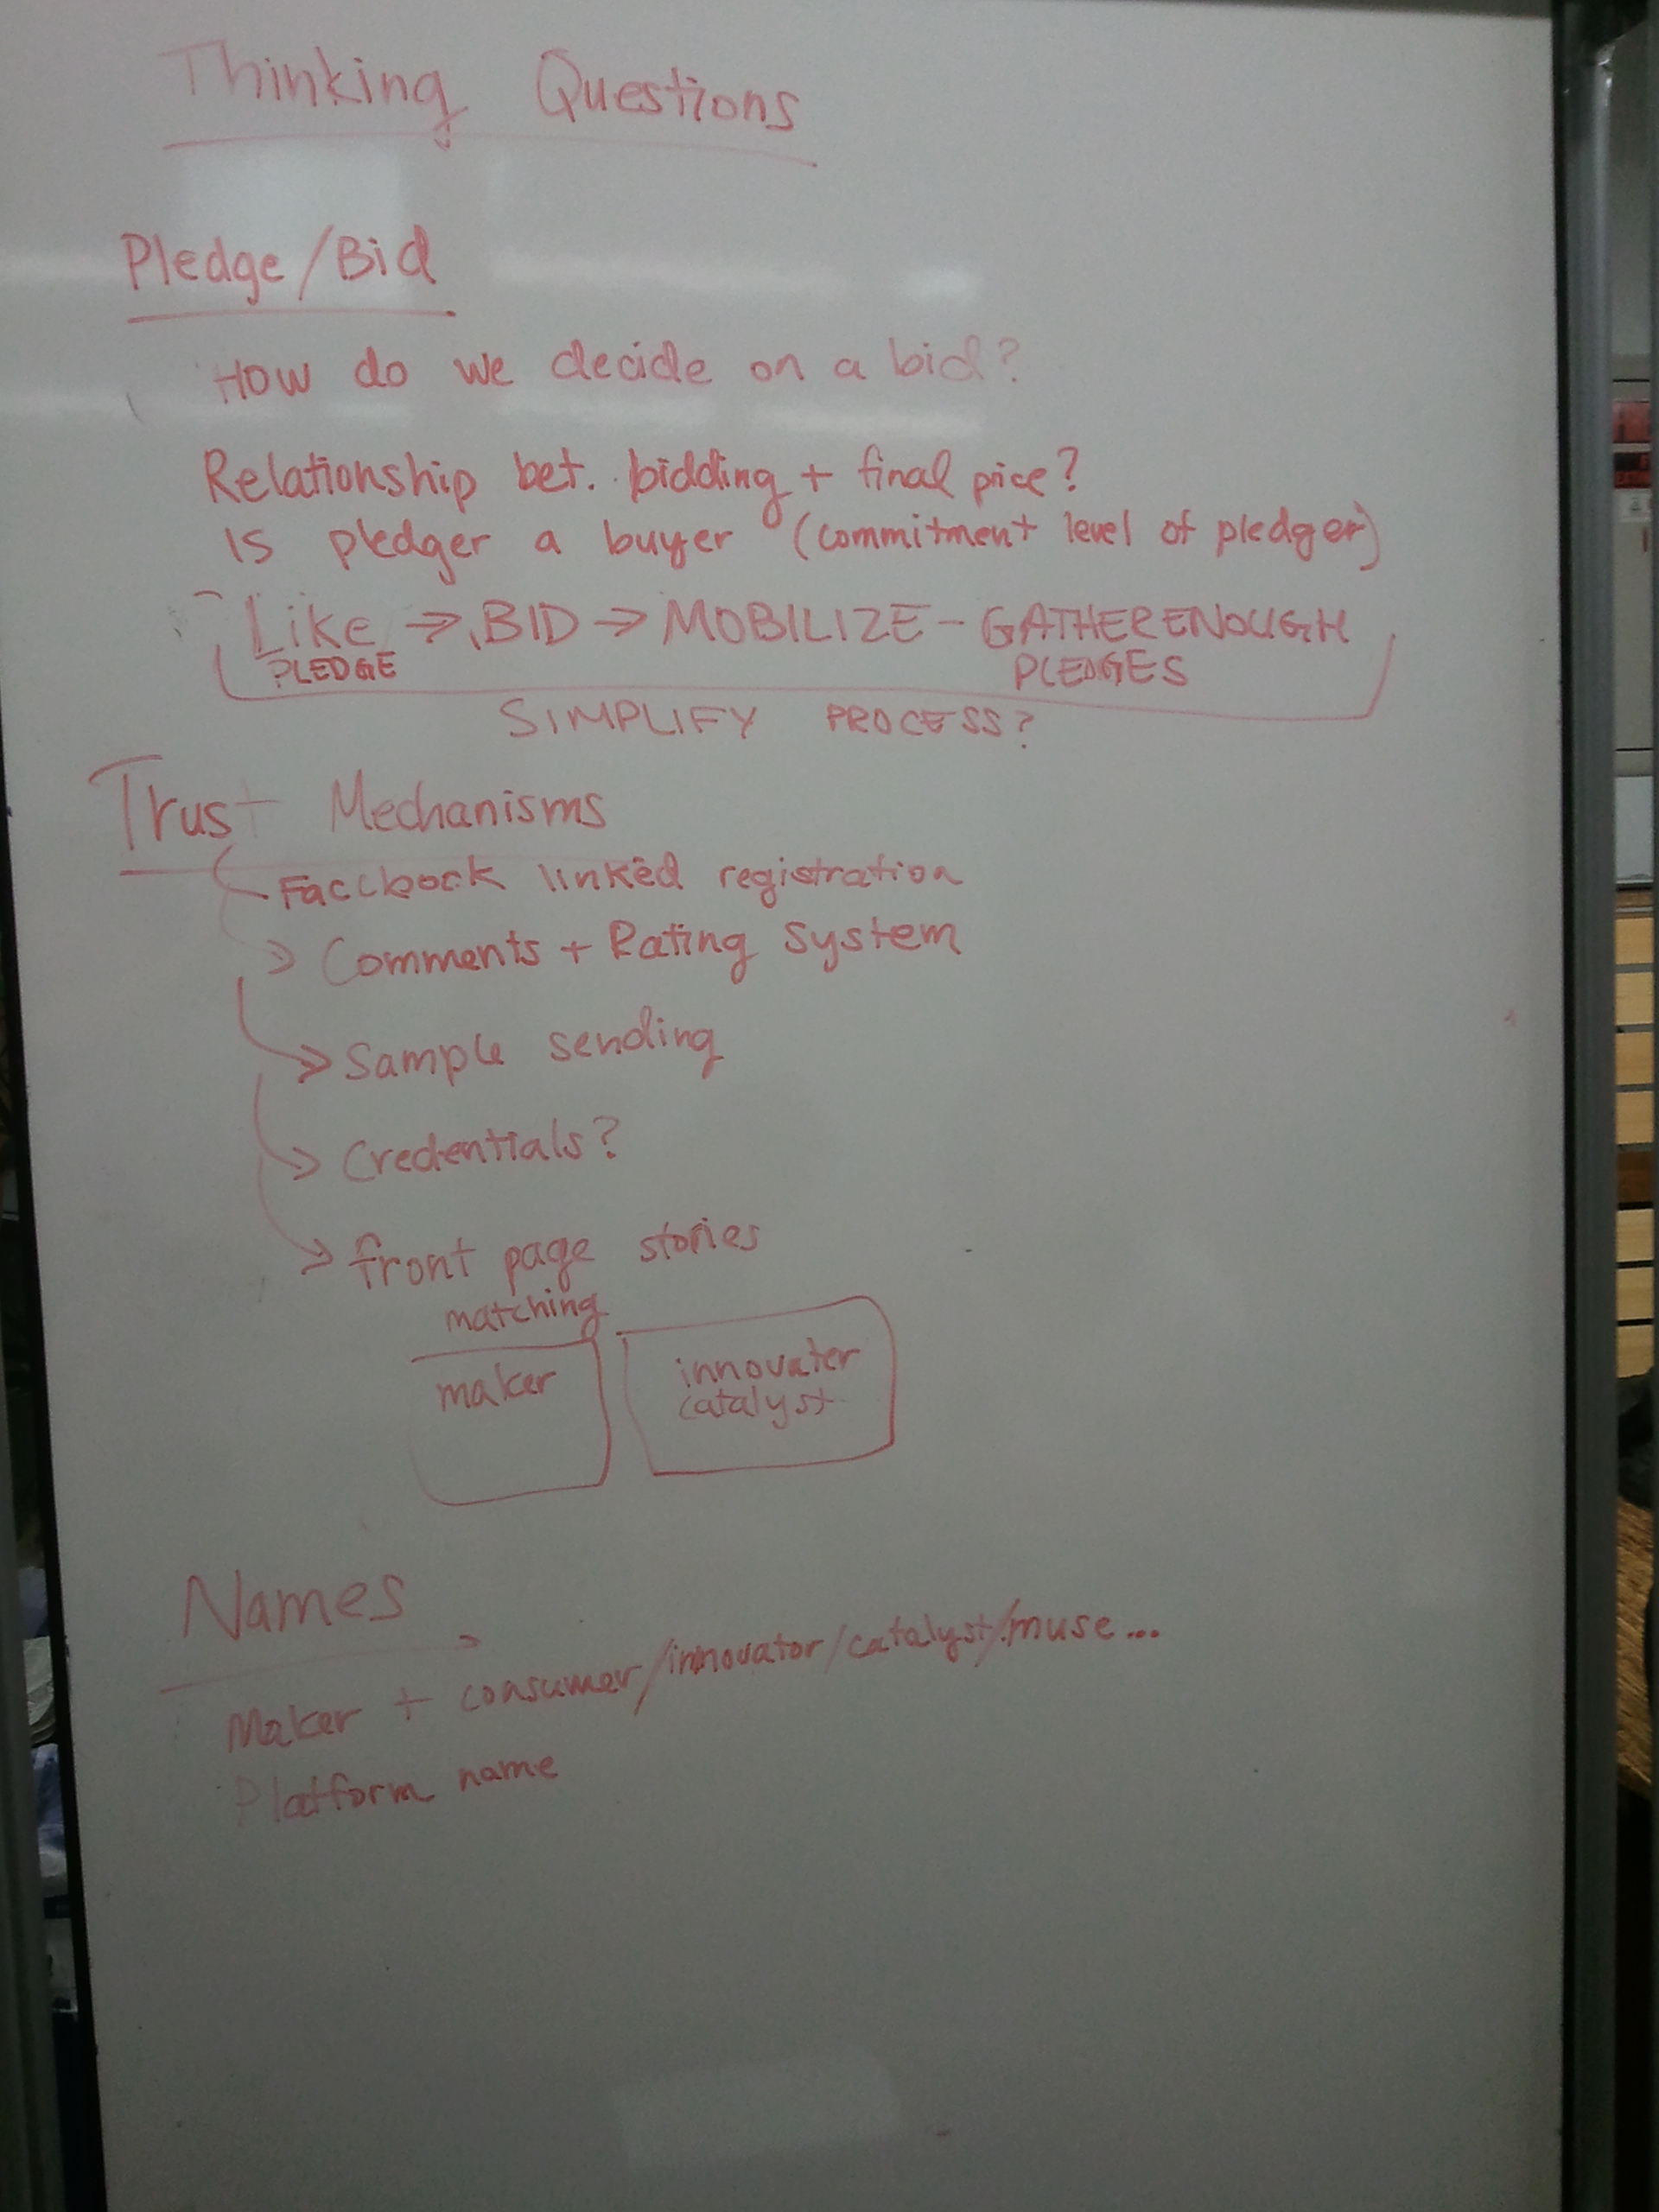 Thinking Questions
Pledge/Bid
How do we decide on a bid?
Relationship bet. bidding + final price?
Is pledger a buyer (commitment level of pledger)
Like → BID → MOBILIZE - GATHER ENOUGH
PLEDGE PLEDGES
SIMPLIFY PROCESS?
Trust Mechanisms
Facebook linked registration
> Comments + Rating System
> Sample sending
> Credentials?
> front page stories
matching
maker innovater
catalyst
Names
Maker + consumer/innovator/catalyst/muse...
Platform name